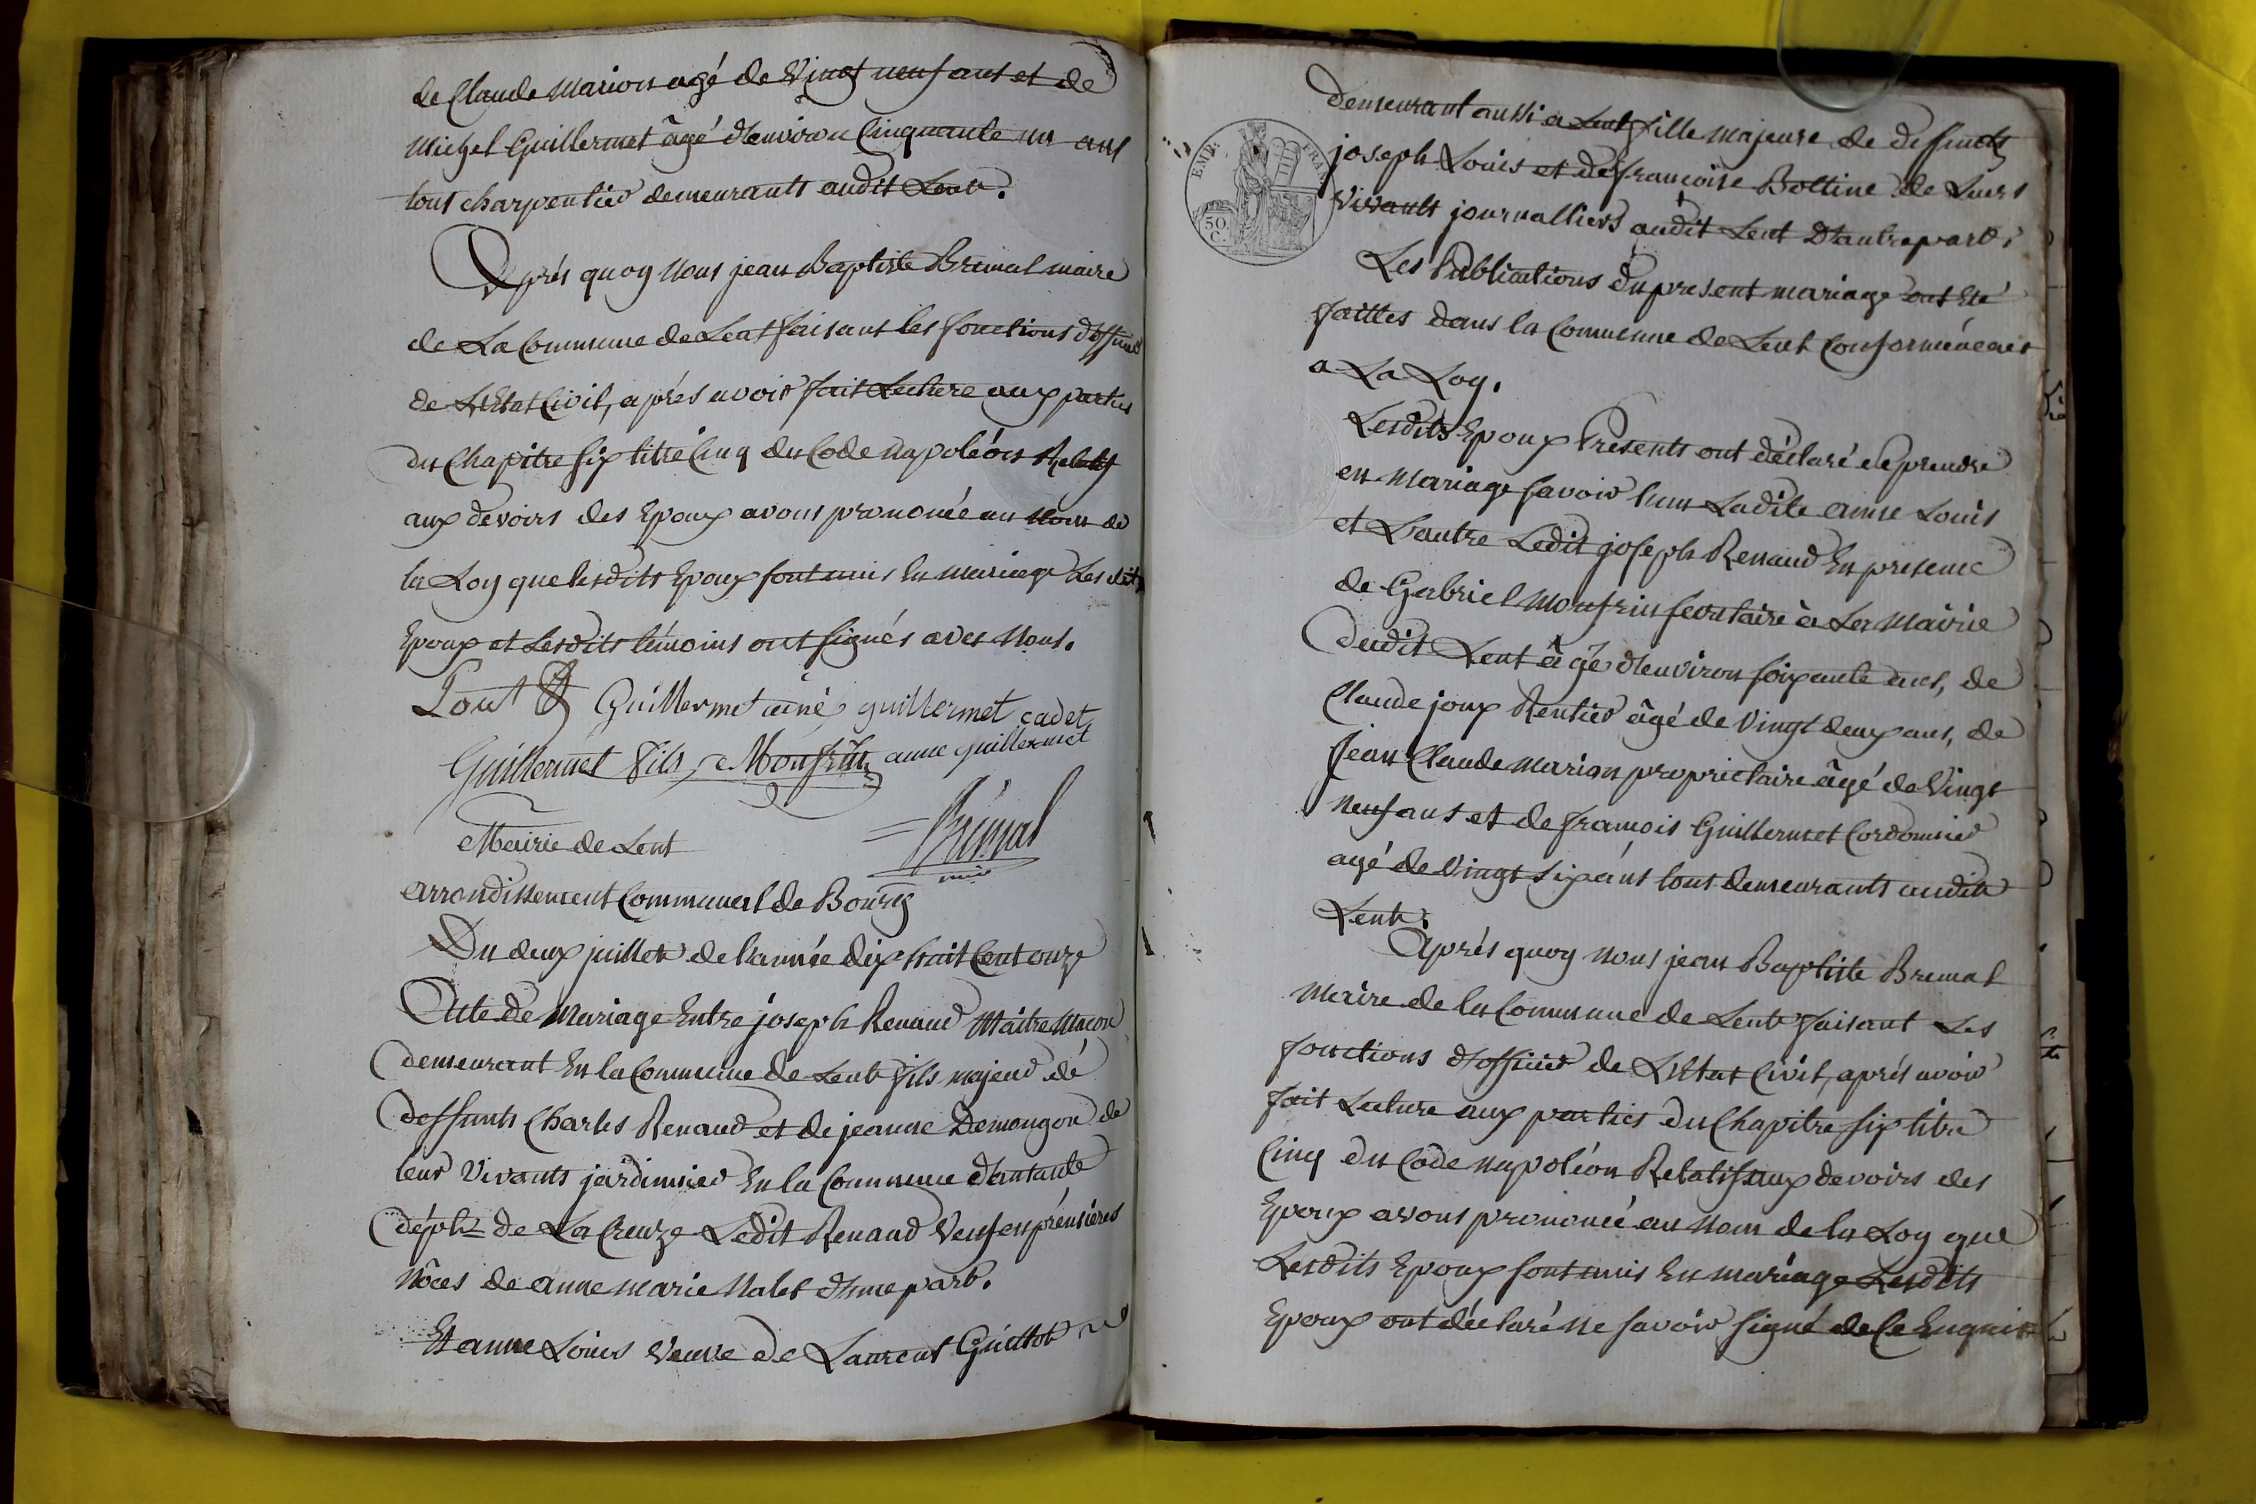 de Claude Marion agé de Vingt neuf ans et de
Michel Guillermet âgé d'environ Cinquante un ans
tous charpentier demeurants audit Lent.
Après quoy Nous jean Baptiste Brimal maire
de La Commune de Lent faisant les fonctions d'officier
de L'Etat Civil, après avoir fait Lecture aux parties
du Chapitre Six titre Cinq du Code Napoléon Relatif
aux devoirs des Epoux avons prononcé au Nom de
la Loy que lesdits Epoux sont unis En Mariage Lesdits
Epoux et Lesdits témoins ont signés avec Nous.
Guillermet ainé guillermet cadet
Guillermet fils Monfrin anne guillermet
Brimal
maire
Mairie de Lent
arrondissement Communal de Bourg
Du deux juillet de l'année dix huit Cent onze
Acte de Mariage Entre joseph Renaud Maitre Macon
demeurant En la Commune de Lent fils majeur de
deffunts Charles Renaud et de jeanne Demongon de
leur Vivants jardinnier En la Commune d'
dépt de La Creuze Ledit Renaud Veuf en prémières
Nôces de anne marie Nalet d'une part.
Et anne Louis Veuve de Laurent Guillot
demeurant aussi a Lent fille majeure de deffuncts
joseph Louis et de françoise Bottine de Leurs
Vivants journalliers audit Lent D'autre part;
Les Publications du present mariage ont Eté
faittes dans la Commune de Lent Conformément
a La Loy.
Lesdits Epoux Présents ont déclaré se prendre
en Mariage savoir l'un Ladite anne Louis
et L'autre Ledit joseph Renaud En presence
de Gabriel Monfrin secrétaire à La Mairie
dudit Lent âgé d'environ soixante ans, de
Claude joux Rentier âgé de Vingt deux ans, de
Jean Claude Marion proprietaire âgé de Vingt
neuf ans et de françois Guillermet Cordonnier
agé de Vingt six ans tous demeurants audit
Lent.
Après quoy nous jean Baptiste Bremal
Maire de la Commune de Lent faisant Les
fonctions d'officier de L'Etat Civil, après avoir
fait Lecture aux parties du Chapitre six titre
Cinq du Code Napoléon Relatif aux devoirs des
Epoux avons prononcé au Nom de la Loy que
Lesdits Epoux sont unis En mariage Lesdits
Epoux ont déclaré Ne savoir signé de Ce Enquis
EMP. FRAN.
50
C.